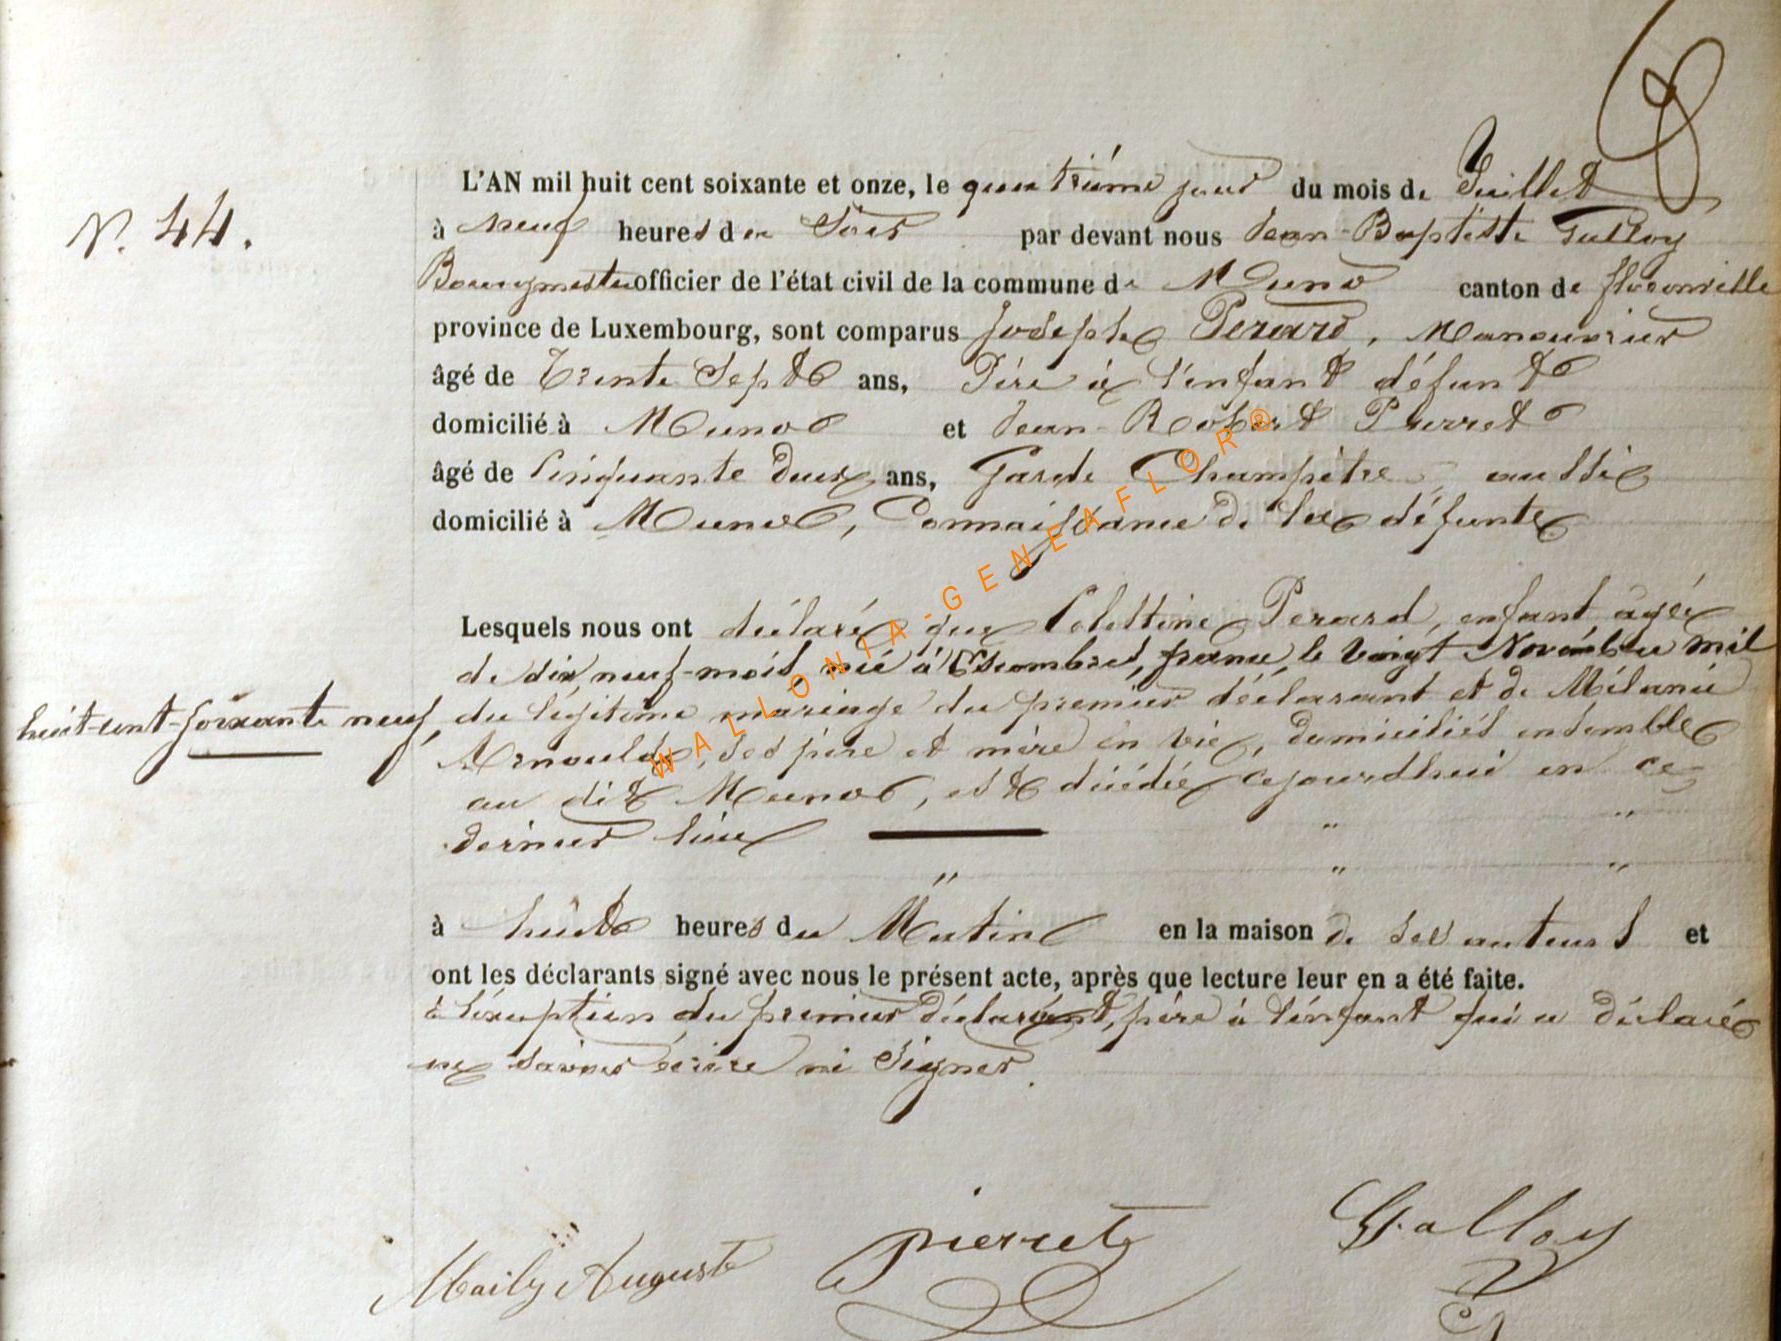 N. 44.
L'AN mil huit cent soixante et onze, le quatrième jour du mois de Juillet
à neuf heures du Soir par devant nous Jean-Baptiste Galloy
Bourgmestre officier de l'état civil de la commune de Muno canton de florenville
province de Luxembourg, sont comparus Joseph Perard, Manouvrier
âgé de Trente Sept ans, Père à l'enfant défunt
domicilié à Muno et Jean-Robert Pierret
âgé de Cinquante deux ans, Garde Champêtre aussi
domicilié à Muno, Connaissance de la défunte
Lesquels nous ont déclaré que Celestine Perard, enfant âgée
de dix neuf-mois, née à Escombres, france, le vingt Novembre mil
huit-cent-soixante neuf, du légitime mariage du premier déclarant et de Mélanie
Arnould, ses père et mère en vie, domiciliés ensemble
au dit Muno, est décédée cejourdhui en ce
dernier lieu
à huit heures du Matin en la maison de ses auteurs et
ont les déclarants signé avec nous le présent acte, après que lecture leur en a été faite.
à l'éxception du premier déclarant, père à l'enfant qui a déclaré
ne savoir écrire ni signer.
Mailly Auguste pierret Galloy
WALLONIA-GENEAFLOR®